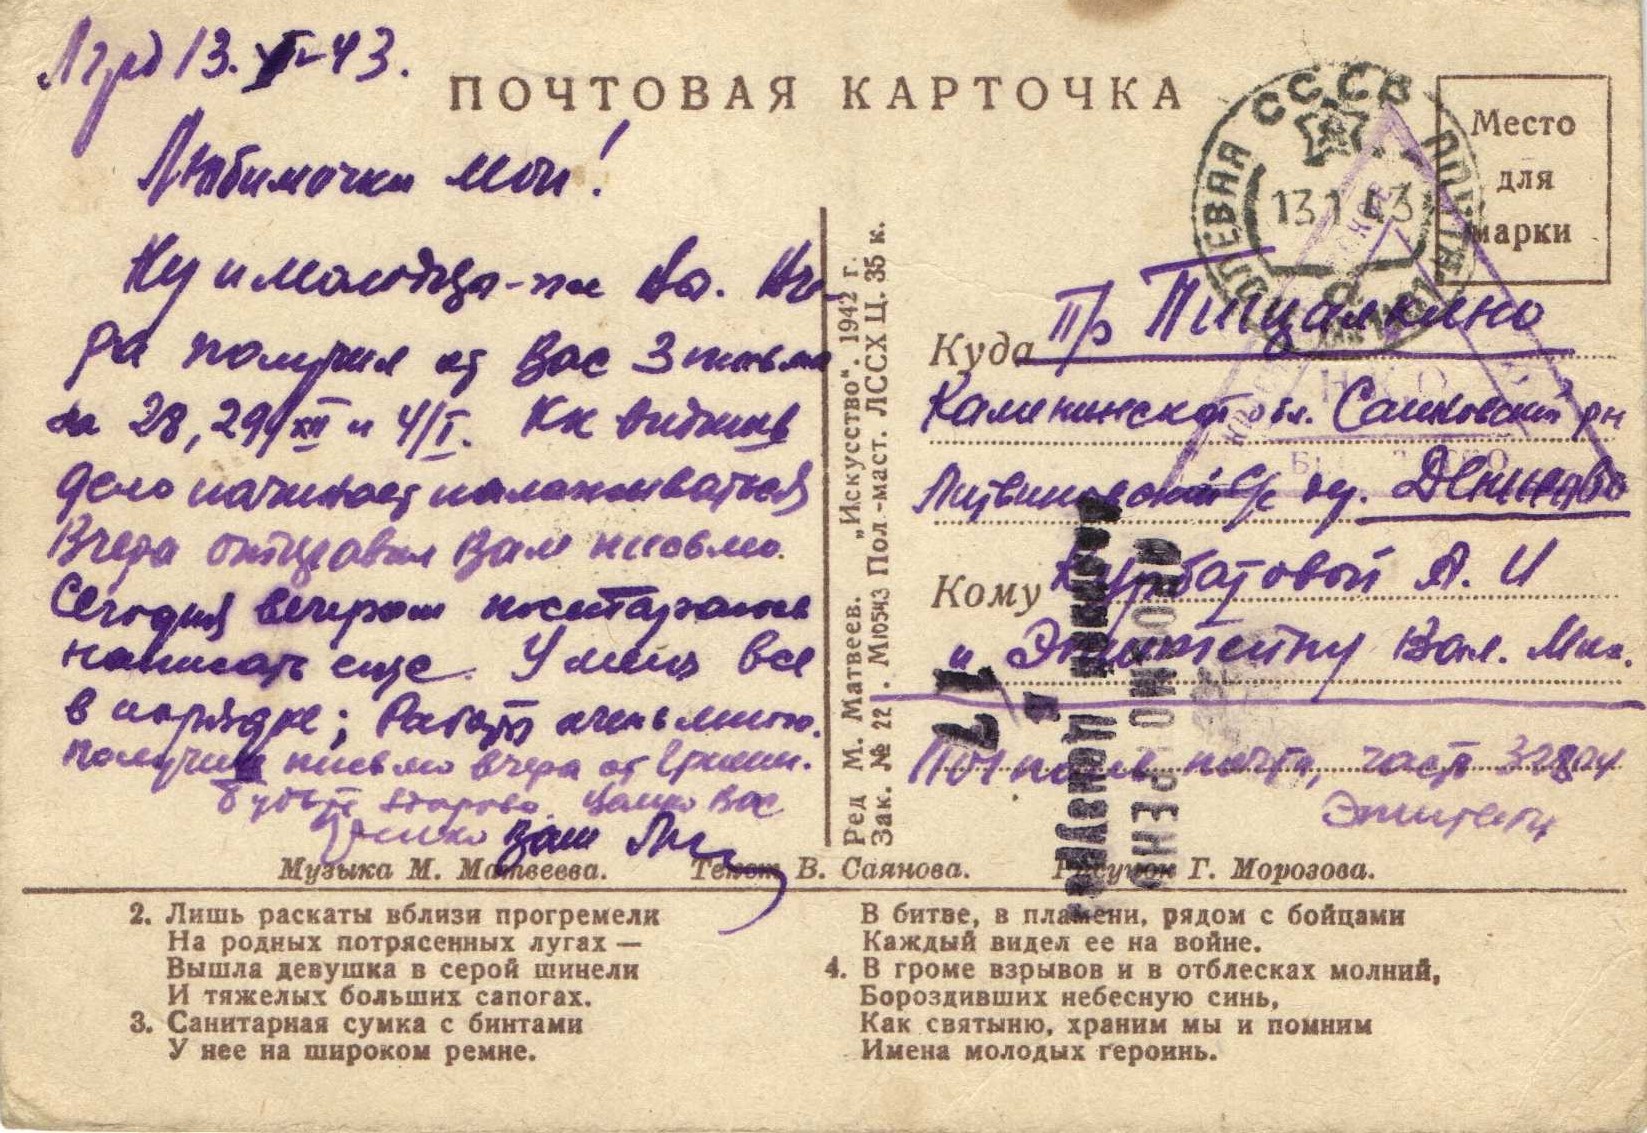 Лгрд 13. I-43.
ПОЧТОВАЯ КАРТОЧКА
Любимочки мои!
Ну и молодца-
ра получил от Вас 3 письма
за 28, 29/XII и 4/I. Кк видими
дело начинает налаживаться
Вчера отправил Вам письмо.
Сегодня вечером постараюсь
написать еще. У меня все
в порядке; Работы очень много.
Получил письмо вчера от Гриши.
Будьте здоровы. Целую Вас
Ваш
СССР
ПОЛЕВАЯ ПОЧТА
13 1 43
Место
для
марки
Куда п/о Пищалкино
Калининской обл. Сонковский рн
Литвиновский с/с д. Дениково
Кому Курбатовой А. И
и Эпштейну Вал. Мих.
Пол почта часть 32804
Эпштейн
НКО
ПРОСМОТРЕНО
Ред М. Матвеев. „Искусство“. 1942 г.
Зак. № 22. М10543 Пол.-маст. ЛССХ Ц. 35 к.
Музыка М. Матвеева. Текст В. Саянова. Рисунок Г. Морозова.
2. Лишь раскаты вблизи прогремели
На родных потрясенных лугах —
Вышла девушка в серой шинели
И тяжелых больших сапогах.
3. Санитарная сумка с бинтами
У нее на широком ремне.
В битве, в пламени, рядом с бойцами
Каждый видел ее на войне.
4. В громе взрывов и в отблесках молний,
Бороздивших небесную синь,
Как святыню, храним мы и помним
Имена молодых героинь.